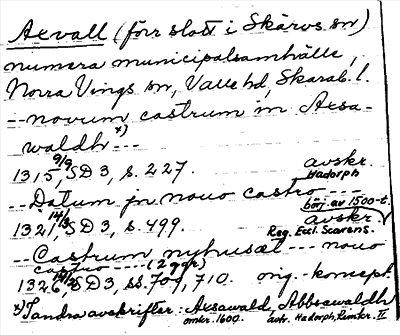 Axvall (förr slott i Skärvs sn)
numera municipalsamhälle,
Norra Vings sn, Valle hd, Skarab. l.
-- novum castrum in Axsa-
waldh x) ---
1315 9/9, SD 3, s. 227. avskr. Hadorph
-- Datum jn nouo castro ----
börj. av 1500-t.
1321 14/3, SD 3, s. 499. avskr. Reg. Eccl. Scarens.
-- Castrum nyhusæt --- nouo
castro ---- (2 ggr)
1326, SD 3, ss. 709, 710. orig.-koncept.
x) I andra avskrifter: Axsawald, Abbsawaldh
omkr. 1600. avs. Hadorph, Rimkr. II